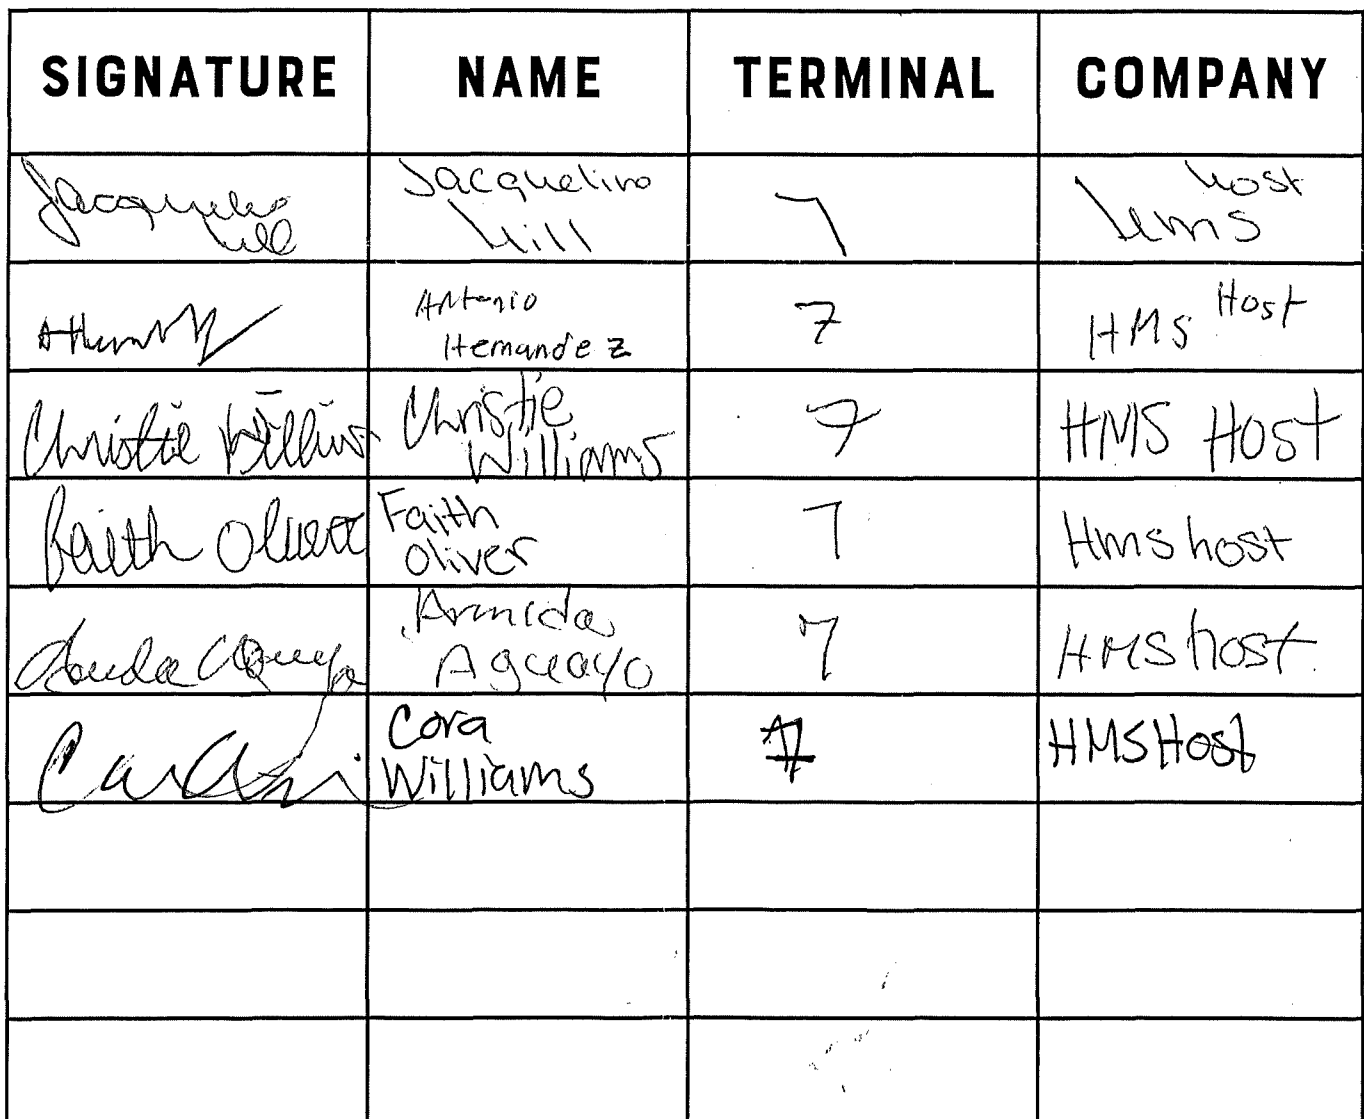 SIGNATURE NAME TERMINAL COMPANY
Jacqueline Hill Jacqueline Hill 7 Hms host
Antonio Hernandez 7 HMS Host
Christie Williams Christie Williams 7 HMS HOST
Faith Oliver Faith Oliver 7 Hms host
Armida Aguayo 7 HMS host
Cora Williams 7 HMSHost